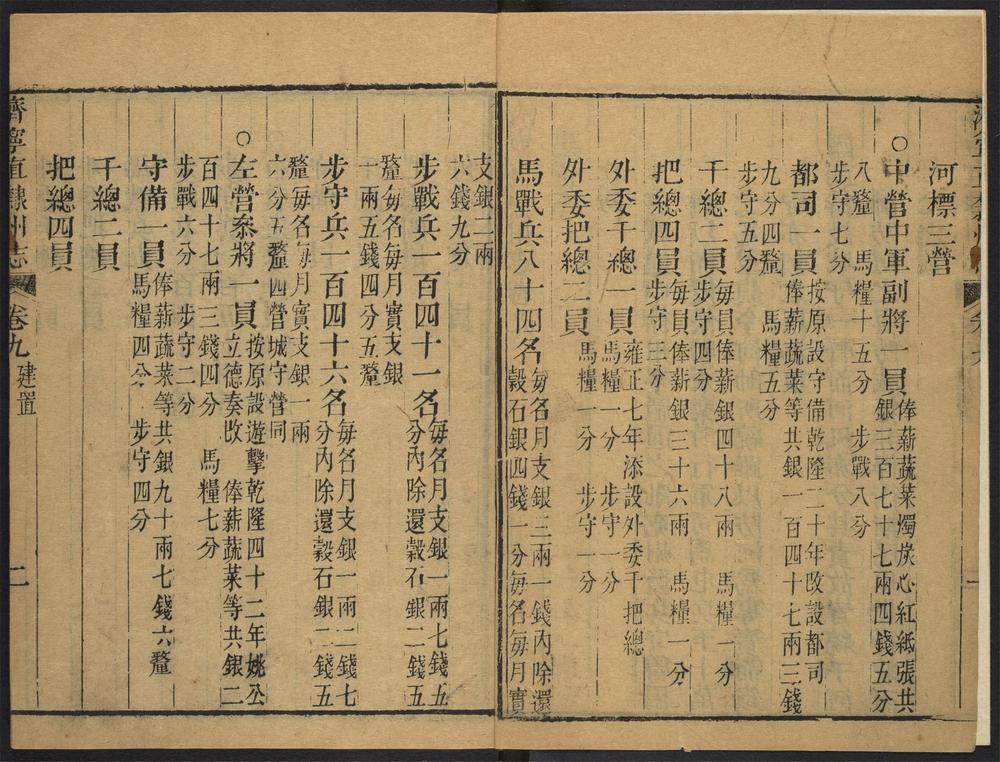 河標三營
○中營中軍副將一員
俸薪蔬菜濁炭心紅紙張共
銀三百七十七兩四錢五分
八釐 馬糧十五分 步戰八分
步守七分
都司一員
按原設守備乾隆二十年改設都司
俸薪蔬菜等共銀一百四十七兩三錢
九分四釐 馬糧五分
步守五分
千總二員
每員俸薪銀四十八兩 馬糧一分
步守四分
把總四員
每員俸薪銀三十六兩 馬糧一分
步守三分
外委千總一員
雍正七年添設外委千把總
馬糧一分 步守一分
外委把總二員
馬糧一分 步守一分
馬戰兵八十四名
每名月支銀三兩一錢內除還
穀石銀四錢一分每名每月實
支銀二兩
六錢九分
步戰兵一百四十一名
每名月支銀一兩七錢五
分內除還穀石銀二錢五
釐每名每月實支銀
一兩五錢四分五釐
步守兵一百四十六名
每名月支銀一兩二錢七
分內除還穀石銀二錢五
釐每名每月實支銀一兩
六分五釐四營城守營同
○左營叅將一員
按原設遊擊乾隆四十二年姚公
立德奏改 俸薪蔬菜等共銀二
百四十七兩三錢四分 馬糧七分
步戰六分 步守二分
守備一員
俸薪蔬菜等共銀九十兩七錢六釐
馬糧四分 步守四分
千總二員
把總四員
濟寧直隸州志 卷九 建置 二